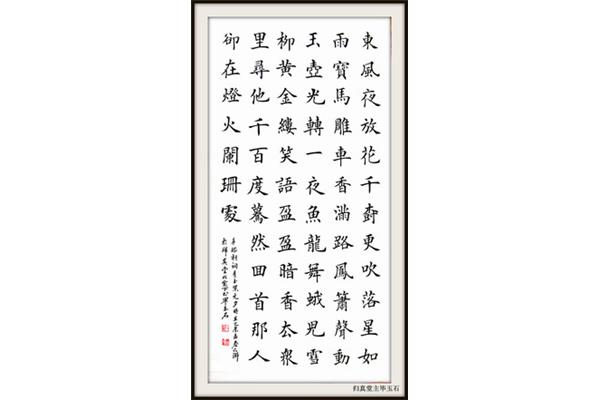 東風夜放花千尌更吹落星如
雨寶馬雕車香滿路鳳簫聲動
玉壺光轉一夜魚龍舞蛾兒雪
柳黃金縷笑語盈盈暗香去眾
里尋他千百度驀然回首那人
卻在燈火闌珊處
归真堂主毕玉石